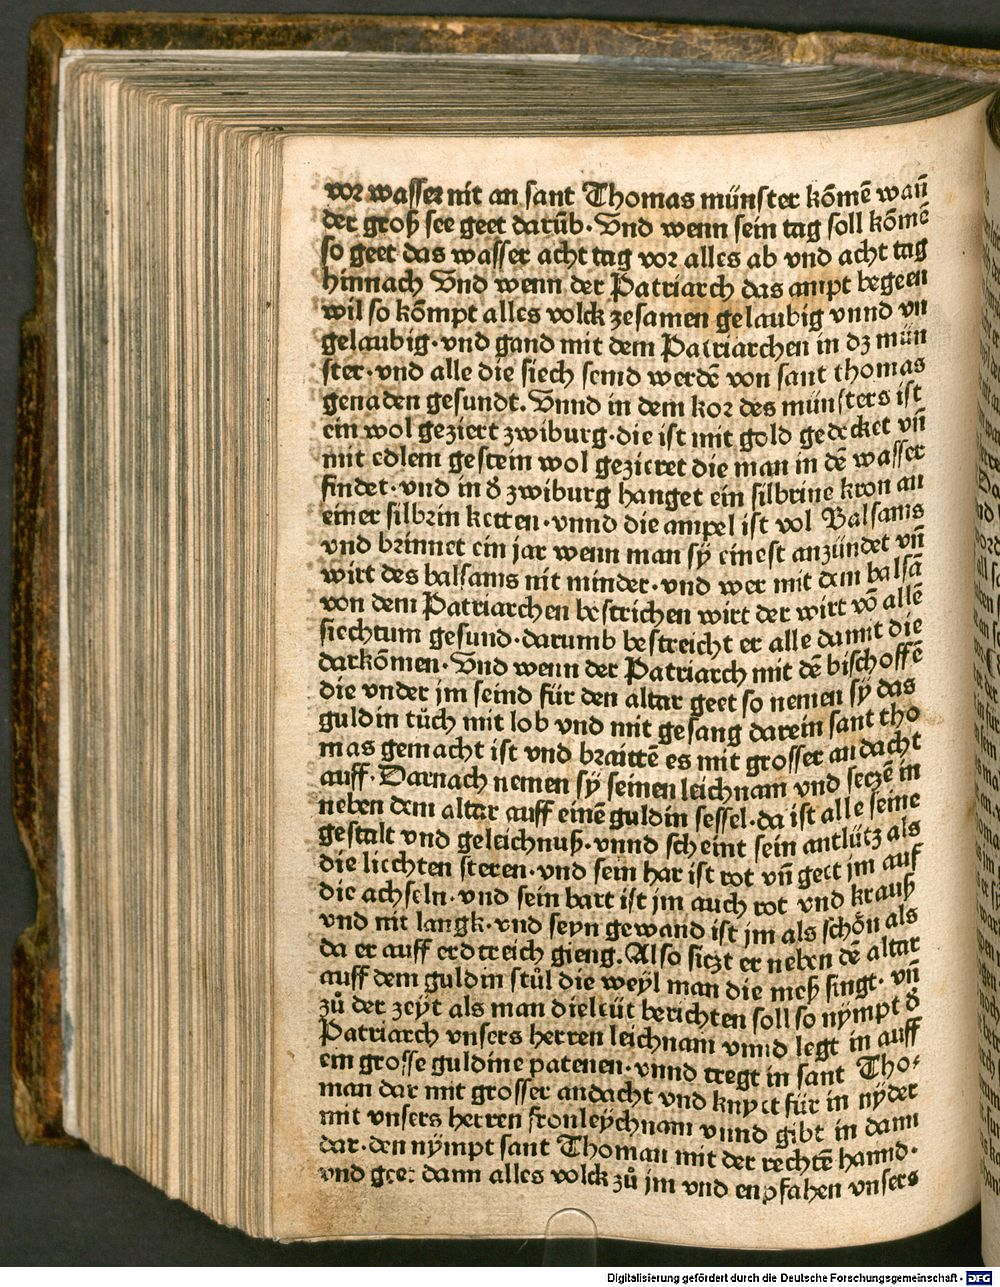 vor wasser nit an sant Thomas münster kōmē wañ
der groß see geet darüb. Vnd wenn sein tag soll kōmē
so geet das wasser acht tag vor alles ab vnd acht tag
hinnach Vnd wenn der Patriarch das ampt begeen
wil so kōmpt alles volck zesamen gelaubig vnnd vn
gelaubig·vnd gand mit dem Patriarchen in dz mün
ster·vnd alle die siech seind werdē von sant thomas
genaden gesundt. Vnnd in dem kor des münsters ist
ein wol geziert zwiburg·die ist mit gold gedecket vñ
mit edlem gestein wol gezieret die man in dē wasser
findet·vnd in d̕ zwiburg hanget ein silbrine kron an
einer silbrin ketten·vnnd die ampel ist vol Balsams
vnd brinnet ein jar wenn man sÿ einest anzündet vñ
wirt des balsams nit minder·vnd wer mit dem balsā
von dem Patriarchen bestrichen wirt der wirt vō allē
siechtum gesund·darumb bestreicht er alle damit die
darkōmen·Vnd wenn der Patriarch mit dē bischoffē
die vnder jm seind für den altar geet so nemen sÿ das
guldin tüch mit lob vnd mit gesang darein sant tho
mas gemacht ist vnd braittē es mit grosser andacht
auff·Darnach nemen sÿ seinen leichnam vnd seczē in
neben dem altar auff einē guldin sessel·da ist alle seine
gestalt vnd geleichnuß·vnnd scheint sein antlütz als
die liechten steren·vnd sein har ist rot vñ geet jm auf
die achseln·vnd sein bart ist jm auch rot vnd krauß
vnd nit langk·vnd seyn gewand ist jm als schön als
da er auff erdtreich gieng. Also siczt er neben dē altar
auff dem guldin stůl die weyl man die meß singt·vñ
zů der zeyt als man die leüt berichten soll so nÿmpt d̕
Patriarch vnsers herren leichnam vnnd legt in auff
ein grosse guldine patenen·vnnd tregt in sant Tho⸗
man dar mit grosser andacht vnd knyet für in nÿder
mit vnsers herren fronleÿchnam vnnd gibt in dann
dar·den nÿmpt sant Thoman mit der rechtē hannd·
vnd geet dann alles volck zů jm vnd enpfahen vnsers
Digitalisierung gefördert durch die Deutsche Forschungsgemeinschaft - DFG